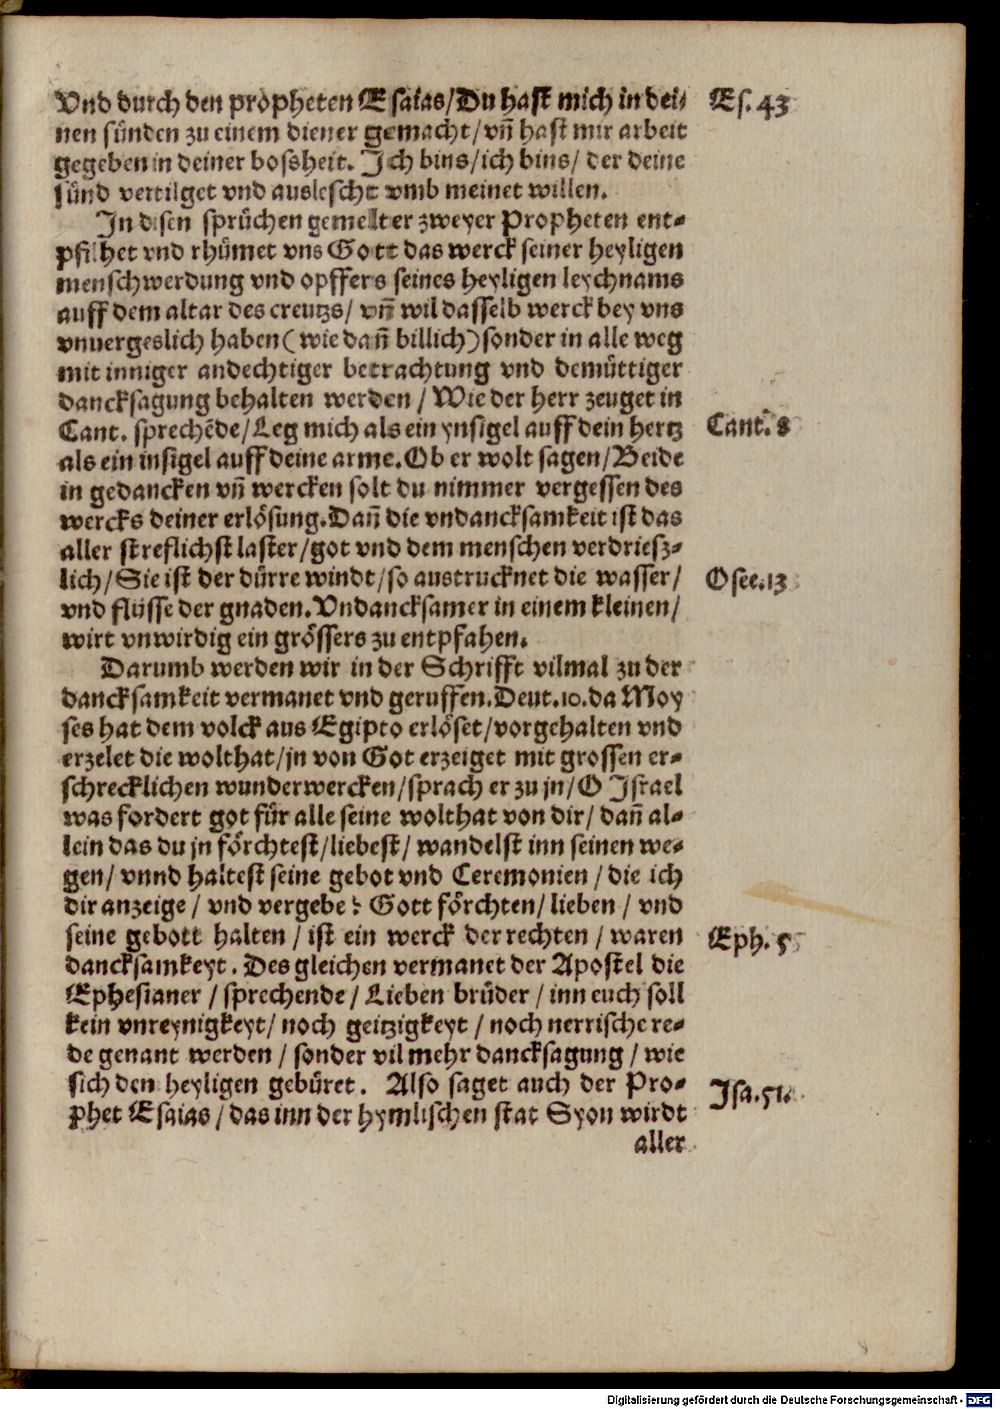 Vnd durch den propheten Esaias/Du hast mich in dei- Es. 43
nen sünden zu einem diener gemacht/vñ hast mir arbeit
gegeben in deiner bossheit. Ich bins/ich bins/ der deine
sünd vertilget vnd auslescht vmb meinet willen.
In disen sprüchen gemelter zweyer Propheten ent-
pfilhet vnd rhümet vns Gott das werck seiner heyligen
menschwerdung vnd opffers seines heyligen leychnams
auff dem altar des creutzs/ vñ wil dasselb werck bey vns
vnuergeslich haben (wie dañ billich) sonder in alle weg
mit inniger andechtiger betrachtung vnd demüttiger
dancksagung behalten werden / Wie der herr zeuget in
Cant. sprechẽde/Leg mich als ein ynsigel auff dein hertz Cant. 8
als ein insigel auff deine arme. Ob er wolt sagen/Beide
in gedancken vñ wercken solt du nimmer vergessen des
wercks deiner erlösung. Dañ die vndancksamkeit ist das
aller streflichst laster/got vnd dem menschen verdriesz-
lich/Sie ist der dürre windt/so austrucknet die wasser/ Osee. 13
vnd flüsse der gnaden. Vndancksamer in einem kleinen/
wirt vnwirdig ein grössers zu entpfahen.
Darumb werden wir in der Schrifft vilmal zu der
dancksamkeit vermanet vnd geruffen. Deut. 10. da Moy
ses hat dem volck aus Egipto erlöset/vorgehalten vnd
erzelet die wolthat/jn von Got erzeiget mit grossen er-
schrecklichen wunderwercken/sprach er zu jn/O Israel
was fordert got für alle seine wolthat von dir/ dañ al-
lein das du jn förchtest/liebest/ wandelst inn seinen we-
gen/ vnnd haltest seine gebot vnd Ceremonien / die ich
dir anzeige / vnd vergebe : Gott förchten/ lieben / vnd
seine gebott halten / ist ein werck der rechten / waren Eph. 5
dancksamkeyt. Des gleichen vermanet der Apostel die
Ephesianer / sprechende / Lieben brüder / inn euch soll
kein vnreynigkeyt/ noch geitzigkeyt / noch nerrische re-
de genant werden / sonder vil mehr dancksagung / wie
sich den heyligen gebüret. Also saget auch der Pro- Isa. 51.
phet Esaias / das inn der hymlischen stat Syon wirdt
aller
Digitalisierung gefördert durch die Deutsche Forschungsgemeinschaft - DFG